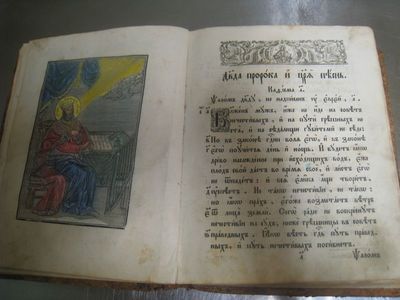 Дв҃да прⷪ҇ро́ка и҆ цр҃ѧ̀ пѣ́снь.
Каѳі́сма а҃.
Ѱало́мъ дв҃ду, не надпи́санъ ᲂу҆ є҆врє́й, а҃.
Бл҃же́нъ мꙋ́жъ, и҆́же не и҆́де на совѣ́тъ
нечести́выхъ, и҆ на пꙋтѝ грѣ́шныхъ не
ста̀, и҆ на сѣда́лищи гꙋби́телей не сѣ́де:
Но въ зако́нѣ гдⷭ҇ни во́лѧ є҆гѡ̀, и҆ въ зако́нѣ
є҆гѡ̀ поꙋчи́тсѧ де́нь и҆ но́щь. И҆ бꙋ́детъ ꙗ҆́кѡ
дре́во насажде́ное при и҆схо́дищихъ во́дъ, є҆́же
пло́дъ сво́й да́стъ во вре́мѧ своѐ, и҆ ли́стъ є҆гѡ̀
не ѿпаде́тъ: и҆ всѧ̑, є҆ли̑ка а҆́ще твори́тъ,
ᲂу҆спѣ́етъ. Не та́кѡ нечести́вїи, не та́кѡ:
но ꙗ҆́кѡ пра́хъ, є҆го́же возмета́етъ вѣ́тръ
ѿ лица̀ землѝ. Сегѡ̀ ра́ди не воскре́снꙋтъ
нечести́вїи на сꙋ́дъ, нижѐ грѣ̑шницы въ совѣ́тъ
пра́ведныхъ. Ꙗ҆́кѡ вѣ́сть гдⷭ҇ь пꙋ́ть пра́вед-
ныхъ, и҆ пꙋ́ть нечести́выхъ поги́бнетъ.
Ѱало́мъ